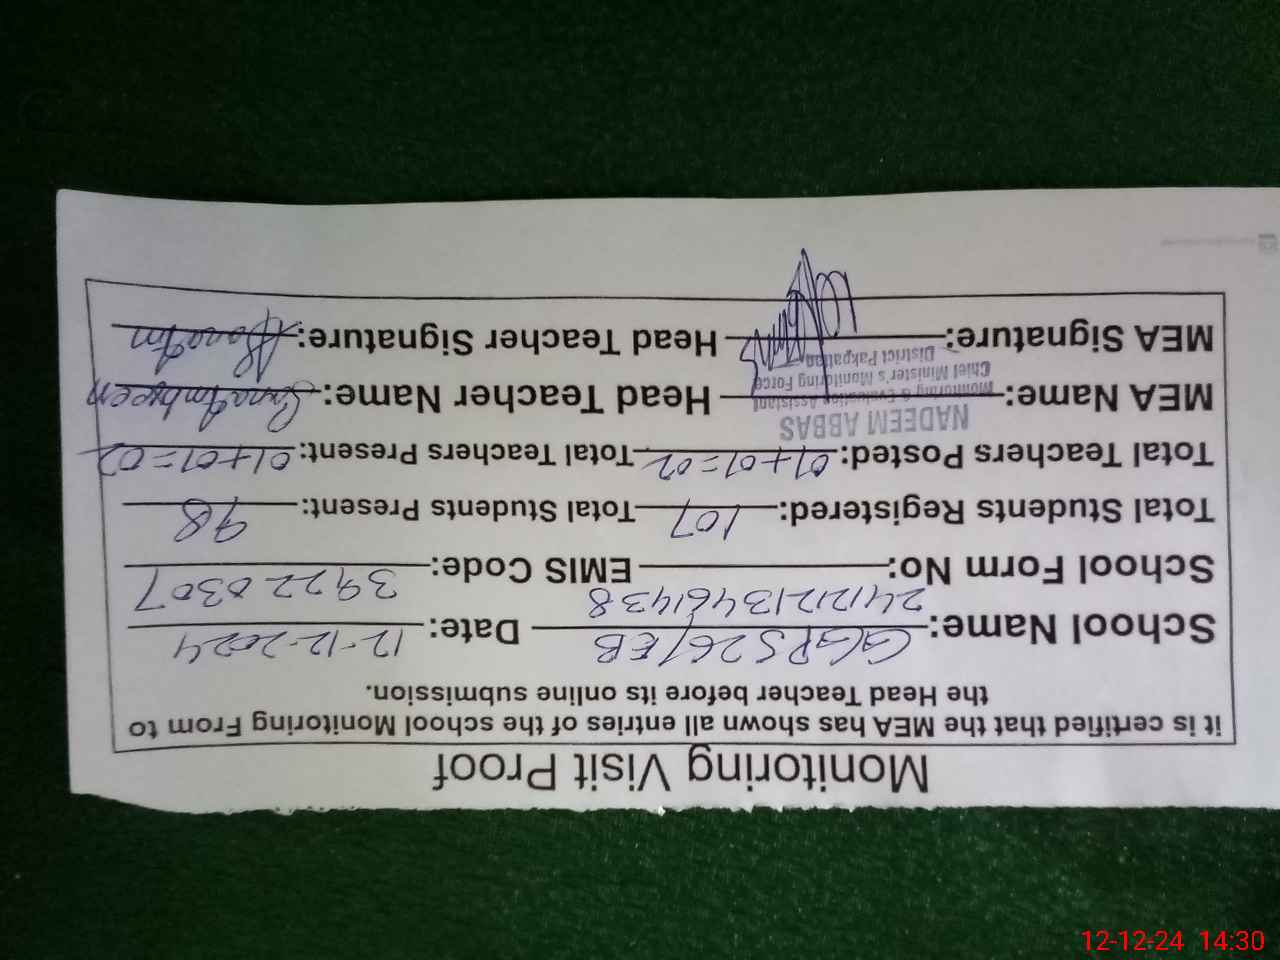 Monitoring Visit Proof
it is certified that the MEA has shown all entries of the school Monitoring From to
the Head Teacher before its online submission.
School Name: GGPS 26/EB Date: 12-12-2024
School Form No: 24121213461438 EMIS Code: 39220307
Total Students Registered: 107 Total Students Present: 98
Total Teachers Posted: 01+01=02 Total Teachers Present: 01+01=02
NADEEM ABBAS
MEA Name: Monitoring & Evaluation Assistant Head Teacher Name: Sana Ambreen
Chief Minister's Monitoring Force
District Pakpattan
MEA Signature: Head Teacher Signature:
12-12-24 14:30